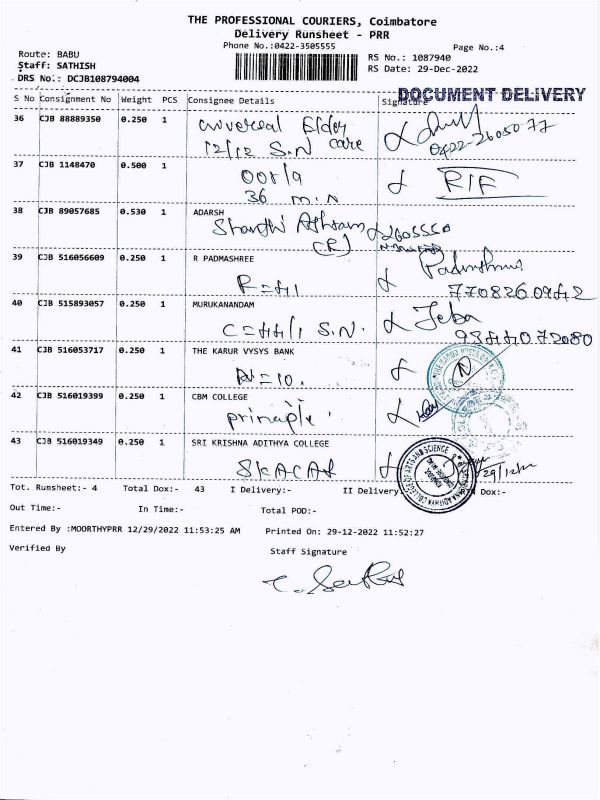 THE PROFESSIONAL COURIERS, Coimbatore
Delivery Runsheet - PRR
Phone No.:0422-3505555
Page No.:4
Route: BABU
Staff: SATHISH
DRS No.: DCJB108794004
RS No.: 1087940
RS Date: 29-Dec-2022
DOCUMENT DELIVERY
S No Consignment No Weight PCS Consignee Details Signature
36 CJB 88889350 0.250 1 universal Elder
12/12 S.N care
0422-2605077
37 CJB 1148470 0.500 1 RIF
36 min
38 CJB 89057685 0.530 1 ADARSH
Shanthi Ashram 2605550
(R)
39 CJB 516056609 0.250 1 R PADMASHREE
40 CJB 515893057 0.250 1 MURUKANANDAM Jeba
S.N.
41 CJB 516053717 0.250 1 THE KARUR VYSYS BANK
N=10.
42 CJB 516019399 0.250 1 CBM COLLEGE
principle.
43 CJB 516019349 0.250 1 SRI KRISHNA ADITHYA COLLEGE
SKACAS 29/12/22
Tot. Runsheet:- 4 Total Dox:- 43 I Delivery:- II Delivery Dox:-
Out Time:- In Time:- Total POD:-
Entered By :MOORTHYPRR 12/29/2022 11:53:25 AM Printed On: 29-12-2022 11:52:27
Verified By Staff Signature